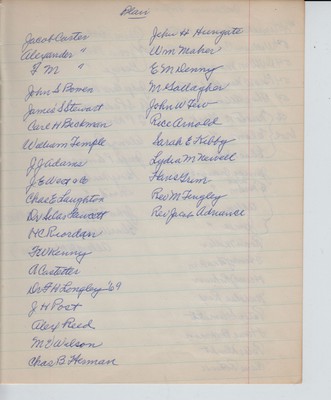 Blair
Jacob Carter
Alexander "
F M "
John S Bower
James S Stewart
Carl H Bickman
William Temple
J J Adams
J E West & Co
Chas E Laughton
Dr Silas Fawcett
H C Riordan
F W Kenny
A Castetter
Dr F H Longley '69
J H Post
Alex Reed
M V Wilson
Chas B Herman
John H Hungate
Wm Maher
E M Denny
M Gallagher
John W Few
Rice Arnold
Sarah E Kibby
Lydia M Newell
Hans Grim
Rev M Tingley
Rev Jacob Adriance